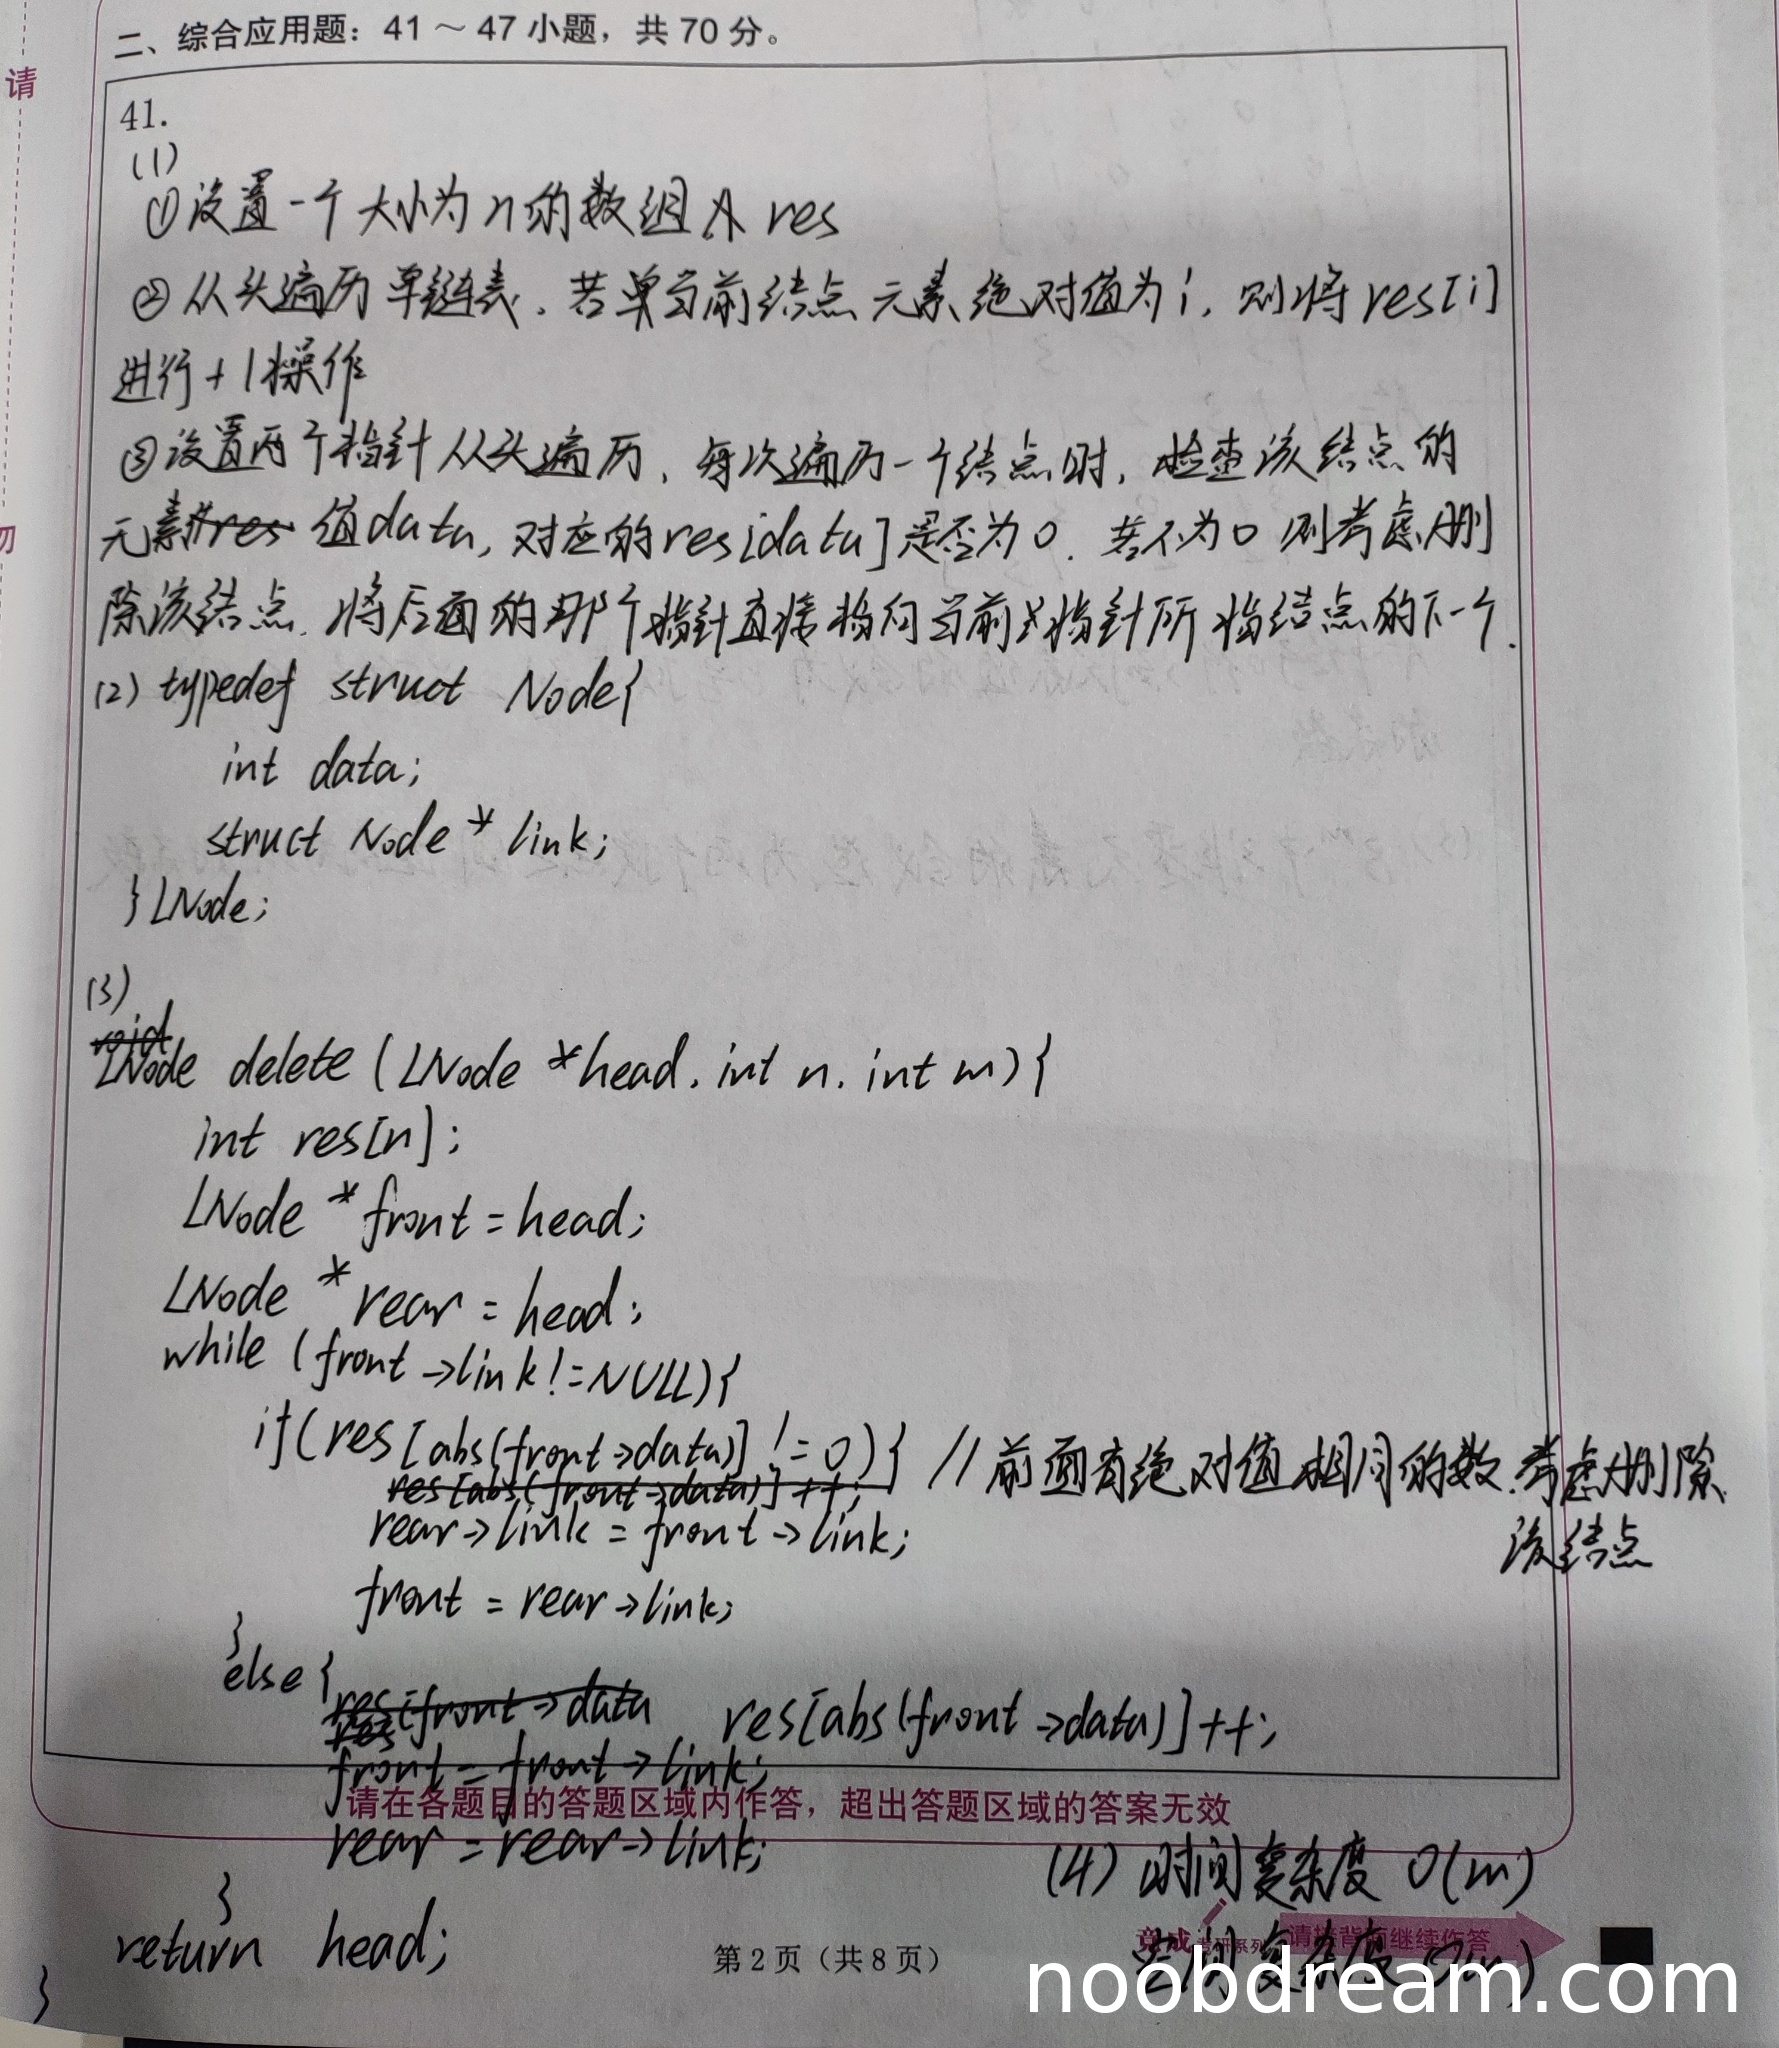 二、综合应用题：41 ～ 47 小题，共 70 分。
请
41.
(1)
①设置一个大小为n的数组A res
②从头遍历单链表，若单当前结点元素绝对值为i，则将res[i]
进行+1操作
③设置两个指针从头遍历，每次遍历一个结点时，检查该结点的
元素res 值data，对应的res[data]是否为0，若不为0则考虑删
除该结点，将后面的那个指针直接指向当前指针所指结点的下一个.
(2) typedef struct Node{
int data;
struct Node * link;
} LNode;
(3)
void
LNode delete (LNode *head, int n, int m) {
int res[n];
LNode * front = head;
LNode * rear = head;
while (front ->link != NULL) {
if(res [abs(front->data)] != 0) { //前面有绝对值相同的数,考虑删除
res[abs(front->data)]++;
该结点
rear->link = front->link;
front = rear->link;
}
else {
res[front->data res[abs(front->data)]++;
res
front = front->link;
请在各题目的答题区域内作答，超出答题区域的答案无效
rear = rear->link;
(4) 时间复杂度 O(m)
}
return head;
第 2 页（共 8 页）
竟成 考研系列
请接背面继续作答
空间复杂度
}
noobdream.com